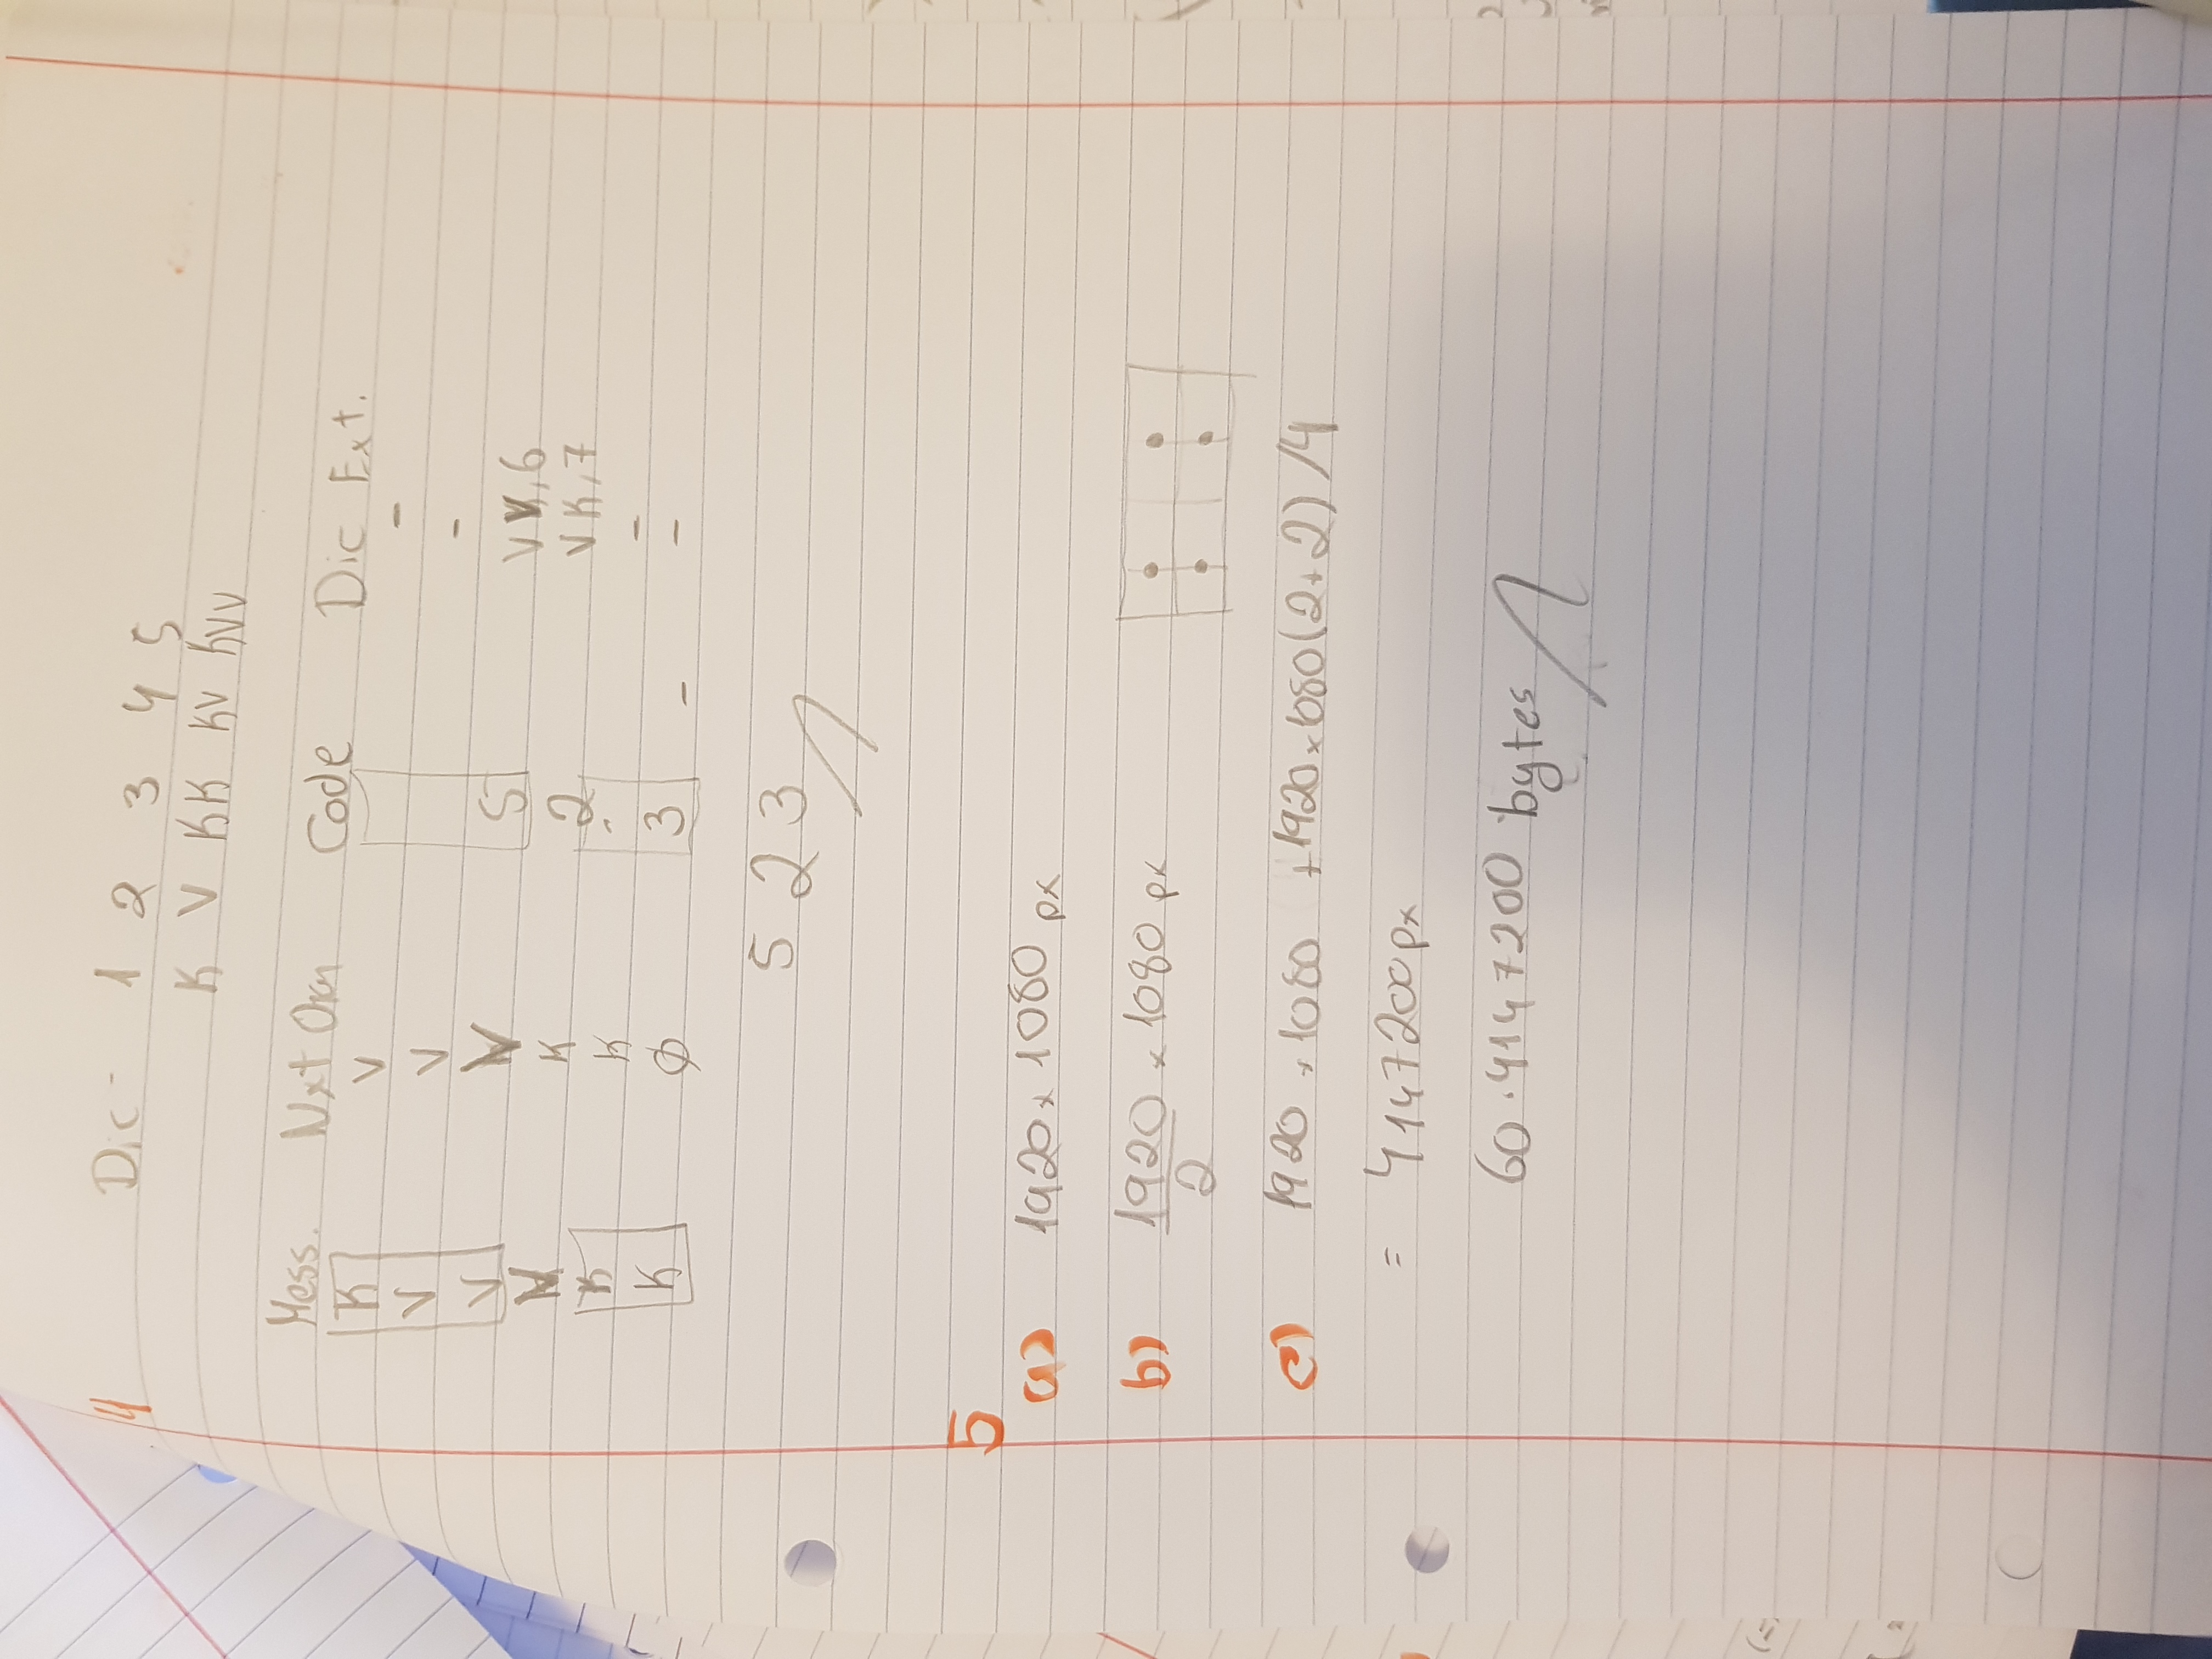 4
Dic - 1 2 3 4 5
K V KK KV KVV
Mess. Nxt Code Dic Ext.
K V -
V V -
V V 5 V V, 6
V K 2 V K, 7
K K - -
K ϕ 3 - -
5 2 3
5
a) 1920 x 1080 px
b) 1920/2 x 1080 px
c) 1920 x 1080 + 1920 x 1080 (2+2) /4
= 4147200 px
60 . 4147200 bytes